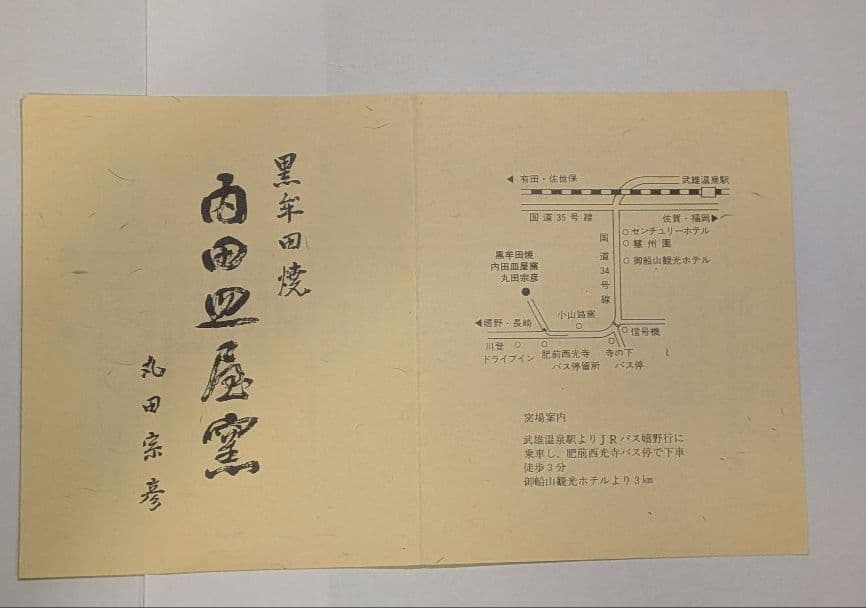 黒牟田焼
内田皿屋窯
丸田宗彦
◀有田・佐世保
武雄温泉駅
国道35号線
佐賀・福岡▶
センチュリーホテル
慧州園
御船山観光ホテル
国道34号線
黒牟田焼
内田皿屋窯
丸田宗彦
小山路窯
◀嬉野・長崎
信号機
川登
ドライブイン
肥前西光寺
バス停留所
寺の下
バス停
窯場案内
武雄温泉駅よりJRバス嬉野行に
乗車し、肥前西光寺バス停で下車
徒歩3分
御船山観光ホテルより3㎞